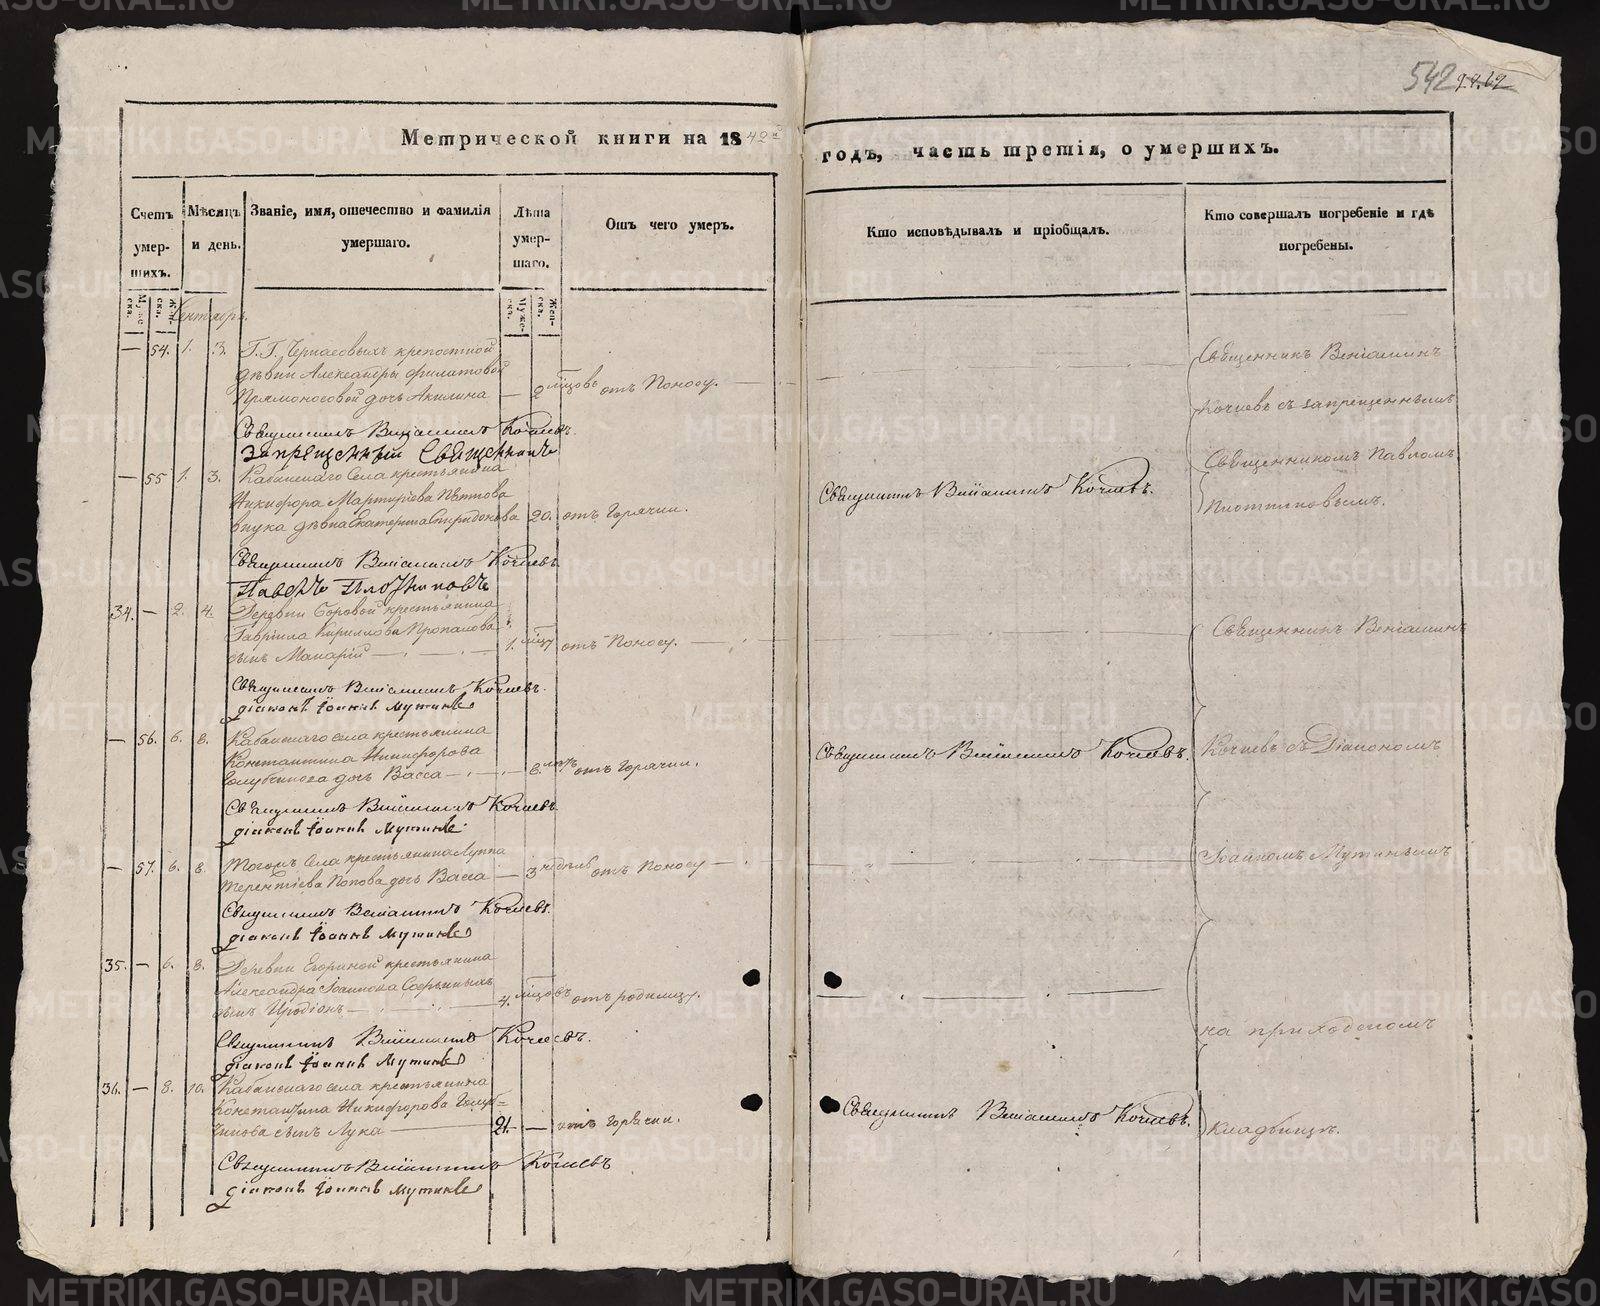 542
Метрической книги на 1842й
годъ, часть третія, о умершихъ.
Счетъ умер-
шихъ.
Мѣсяцъ
и день.
Званіе, имя, отечество и фамилія
умершаго.
Лѣта
умер-
шаго.
Отъ чего умеръ.
Кто исповѣдывалъ и пріобщалъ.
Кто совершалъ погребеніе и гдѣ
погребены.
Муже-
ска.
Жен-
ска.
Муже-
ска.
Жен-
ска.
Сентябрь.
— 54. 1. 3. Г. Г. крепостной
дѣвки Александры Филатовой
Прямоносовой дочь Акилина — 2 мѣсяцовъ отъ Поносу.
Священникъ Веніаминъ Кочіевъ.
Запрещенный Священникъ
— 55 1. 3. Кабанскаго села крестьянина
Никифора Мартиріева
внука дѣвка Екатерина Спиридонова 20. отъ Горячки.
Священникъ Веніаминъ Кочіевъ.
Священникъ Веніаминъ Кочіевъ
Павелъ Плотниковъ
34. — 2. 4. Деревни Боровой крестьянина
Гавріила Кириллова
сынъ Макарій — 1. мѣсяцу отъ Поносу.
Священникъ Веніаминъ Кочіевъ.
діаконъ Іоаннъ Мутинъ
— 56. 6. 8. Кабанскаго села крестьянина
Константина Никифорова
Голубчикова дочь Васса — 8. отъ Горячки.
Священникъ Веніаминъ Кочіевъ.
Священникъ Веніаминъ Кочіевъ.
діаконъ Іоаннъ Мутинъ
— 57. 6. 8. Тогожъ села крестьянина Луппа
Терентіева Попова дочь Васса — 3 недѣль отъ Поносу
Священникъ Веніаминъ Кочіевъ.
діаконъ Іоаннъ Мутинъ
35. — 6. 8. Деревни Егориной крестьянина
Александра Іоаннова
сынъ Иродіонъ — 4. мѣсяцовъ отъ родимцу.
Священникъ Веніаминъ Кочіевъ.
діаконъ Іоаннъ Мутинъ
36. — 8. 10. Кабанскаго села крестьянина
Константина Никифорова Голуб-
чикова сынъ Лука — 21. — отъ Горячки.
Священникъ Веніаминъ Кочіевъ.
Священникъ Веніаминъ Кочіевъ
діаконъ Іоаннъ Мутинъ
Священникъ Веніаминъ
Кочіевъ съ запрещеннымъ
Священникомъ Павломъ
Плотниковымъ.
Священникъ Веніаминъ
Кочіевъ съ Діакономъ
Іоанномъ Мутинымъ
на приходскомъ
кладбищѣ.
METRIKI.GASO-URAL.RU